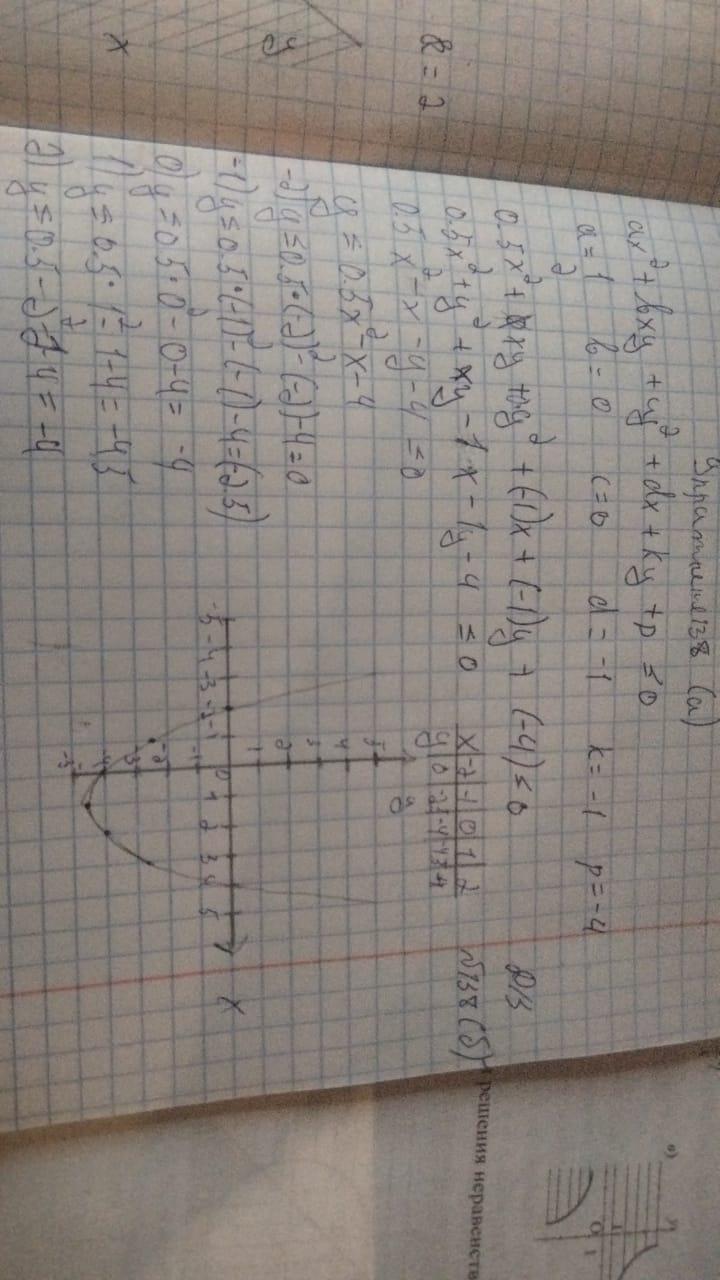 Упражнение 138 (а)
ax² + bxy + cy² + dx + ky + p ≤ 0
a = 1 b = 0 c = 0 d = -1 k = -1 p = -4
2
0.5x² + xy + y² + (-1)x + (-1)y + (-4) ≤ 0
0.5x² + y² + xy - 1x - 1y - 4 ≤ 0
0.5x² - x - y - 4 ≤ 0
y ≤ 0.5x² - x - 4
-2) y ≤ 0.5·(-2)² - (-2) - 4 = 0
-1) y ≤ 0.5·(-1)² - (-1) - 4 = (-2.5)
0) y ≤ 0.5·0² - 0 - 4 = -4
1) y ≤ 0.5·1² - 1 - 4 = -4,5
2) y ≤ 0.5 - 2² - 2 - 4 = -4
x -2 -1 0 1 2
y 0 -2,5 -4 -4,5 -4
Д/З
№138 (б)
-5 -4 -3 -2 -1 0 1 2 3 4 5
x
5
4
3
2
1
-1
-2
-3
-4
-5
y
= 2
y
x
решения неравенств
в)
0
1